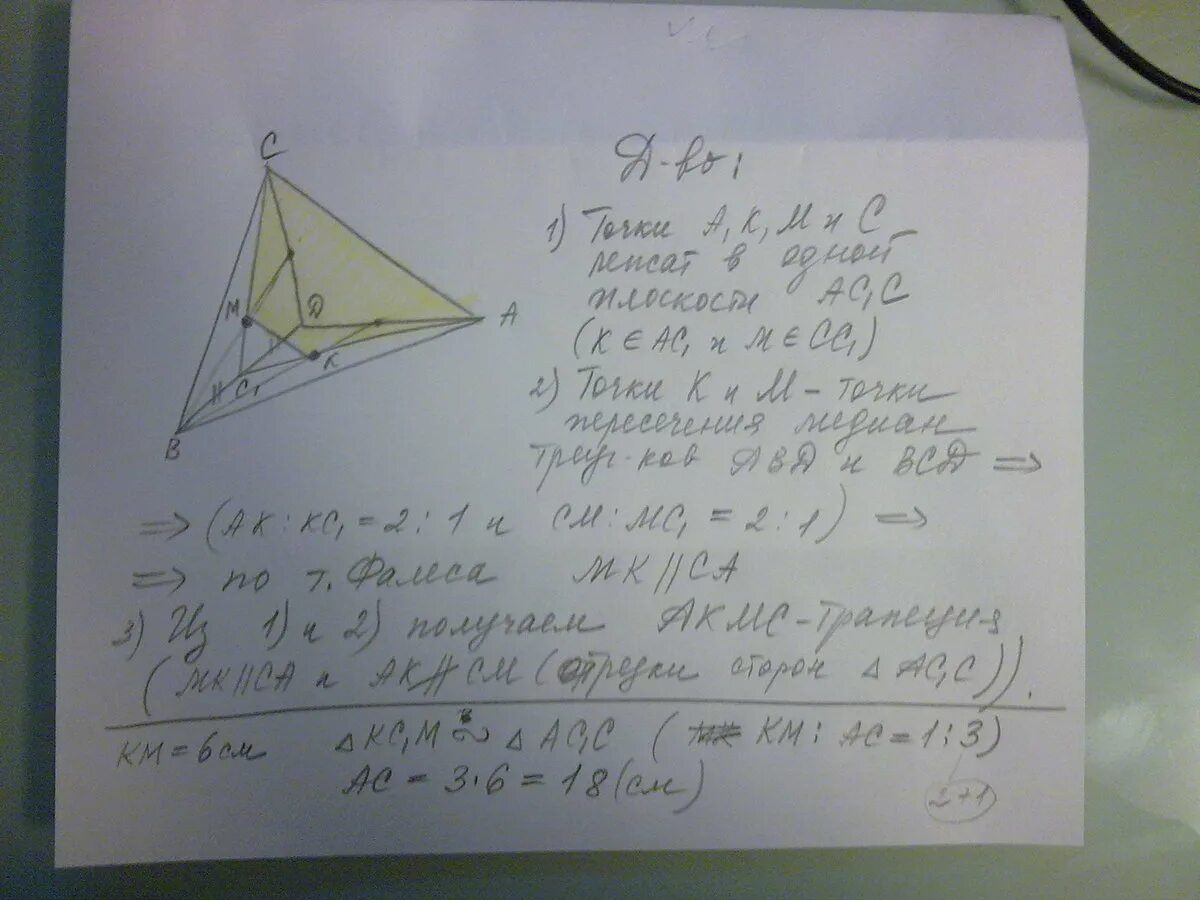 C
M
D
A
K
C₁
B
Д-во:
1) Точки A, K, M и C
лежат в одной
плоскости AC₁C
(K ∈ AC₁ и M ∈ CC₁)
2) Точки K и M – точки
пересечения медиан
треуг-ков ABD и BCD ⇒
⇒ (AK : KC₁ = 2 : 1 и CM : MC₁ = 2 : 1) ⇒
⇒ по т. Фалеса MK || CA
3) Из 1) и 2) получаем AKMC – трапеция
(MK || CA и AK ∦ CM (отрезки сторон △ AC₁C)).
KM = 6 см △ KC₁M ∾ △ AC₁C ( KM : AC = 1 : 3)
AC = 3 · 6 = 18 (см)
2+1